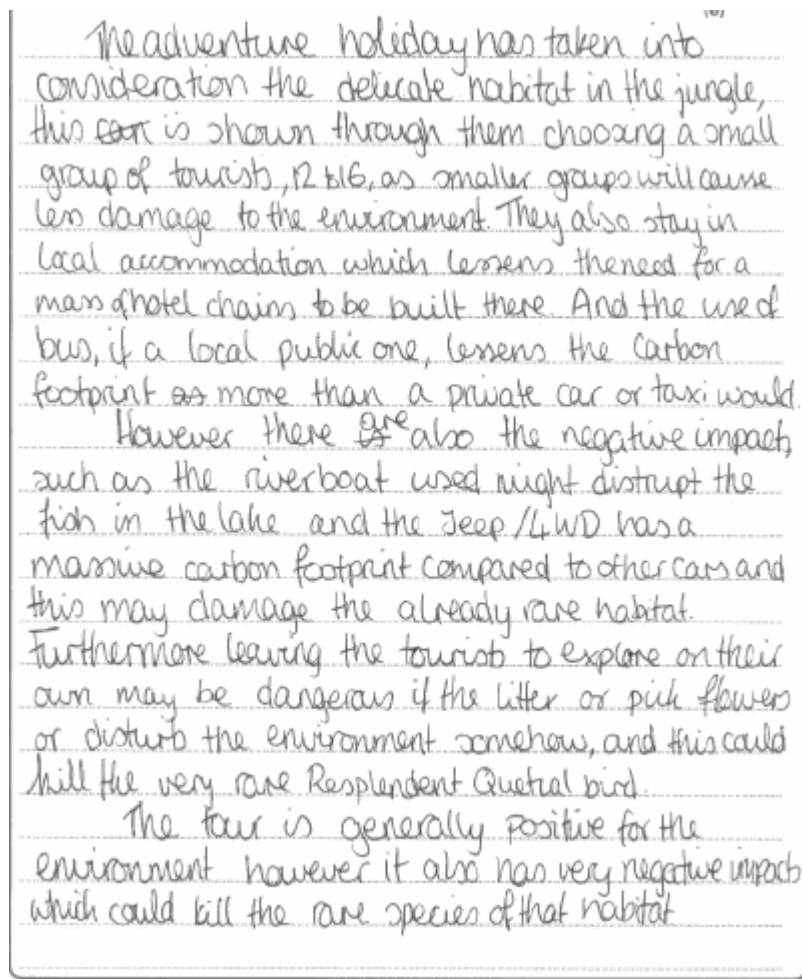 (6)
The adventure holiday has taken into
consideration the delicate habitat in the jungle,
this is shown through them choosing a small
group of tourists, 12 to 16, as smaller groups will cause
less damage to the environment. They also stay in
local accommodation which lessens the need for a
mass of hotel chains to be built there. And the use of
bus, if a local public one, lessens the Carbon
footprint more than a private car or taxi would.
However there are also the negative impacts,
such as the riverboat used might distrupt the
fish in the lake and the Jeep/4WD has a
massive carbon footprint compared to other cars and
this may damage the already rare habitat.
Furthermore leaving the tourists to explore on their
own may be dangerous if the litter or pick flowers
or disturb the environment somehow, and this could
kill the very rare Resplendent Quetzal bird.
The tour is generally positive for the
environment however it also has very negative impacts
which could kill the rare species of that habitat